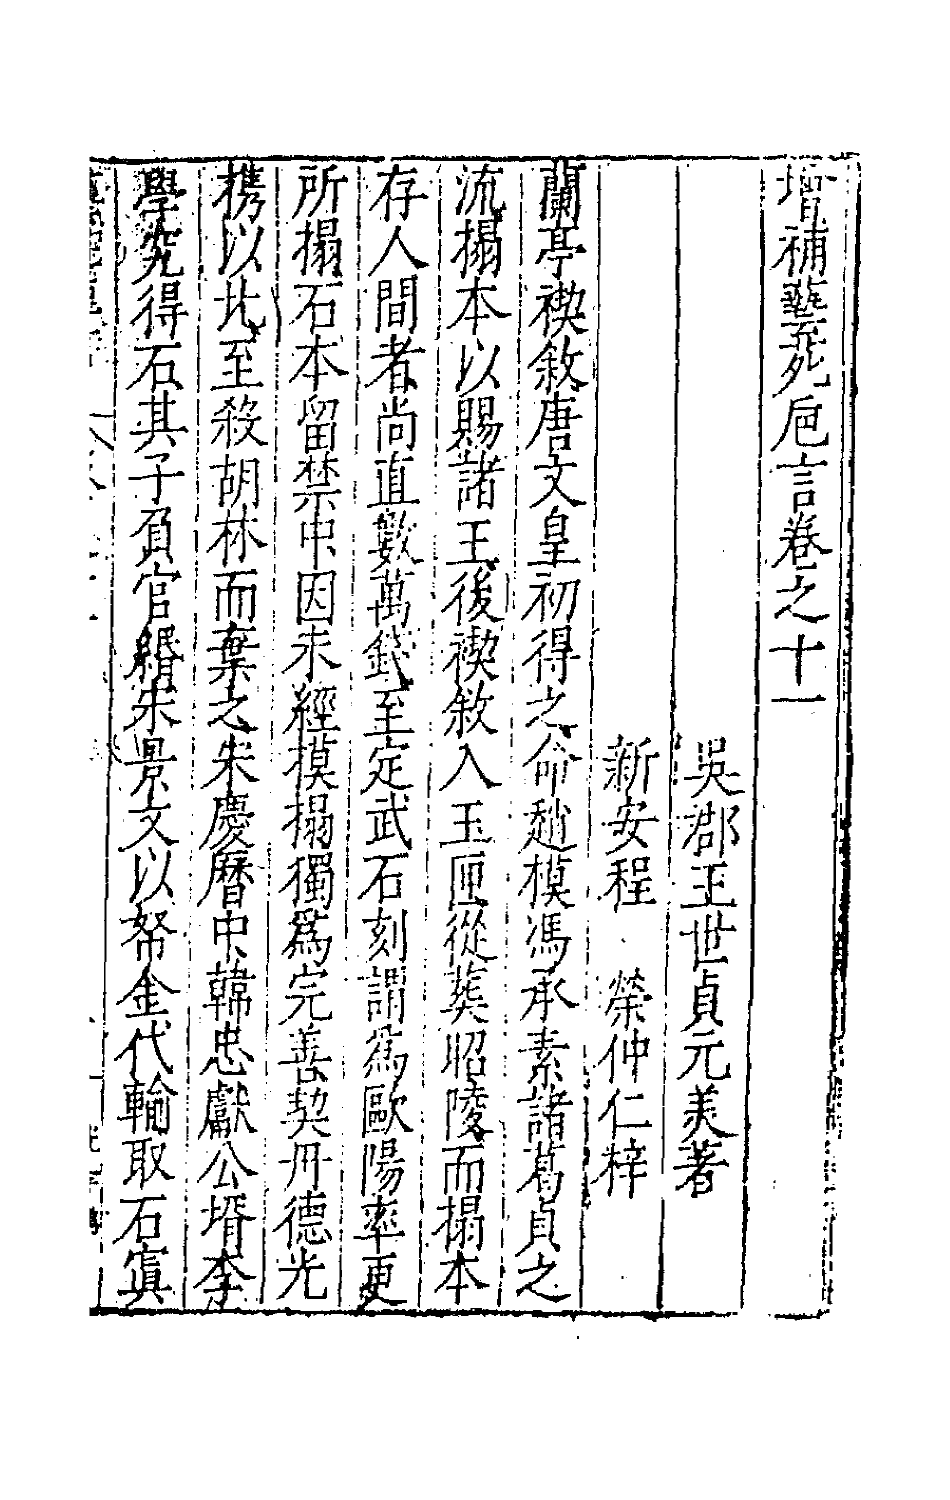 增補藝苑巵言卷之十一
吳郡王世貞元美著
新安程 榮仲仁梓
蘭亭禊敘唐文皇初得之命趙模馮承素諸葛貞之
流搨本以賜諸王後禊敘入玉匣從葬昭陵而搨本
存人間者尚直數萬錢至定武石刻謂爲歐陽率更
所搨石本留禁中因未經模搨獨爲完善契丹德光
携以北至殺胡林而棄之宋慶曆中韓忠獻公壻李
學究得石其子負官緡宋景文以帑金代輸取石寘